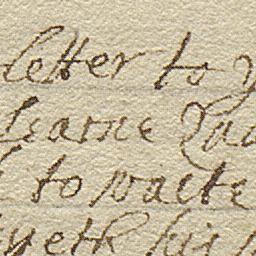 letter to y
learne La
to waite
yeth his